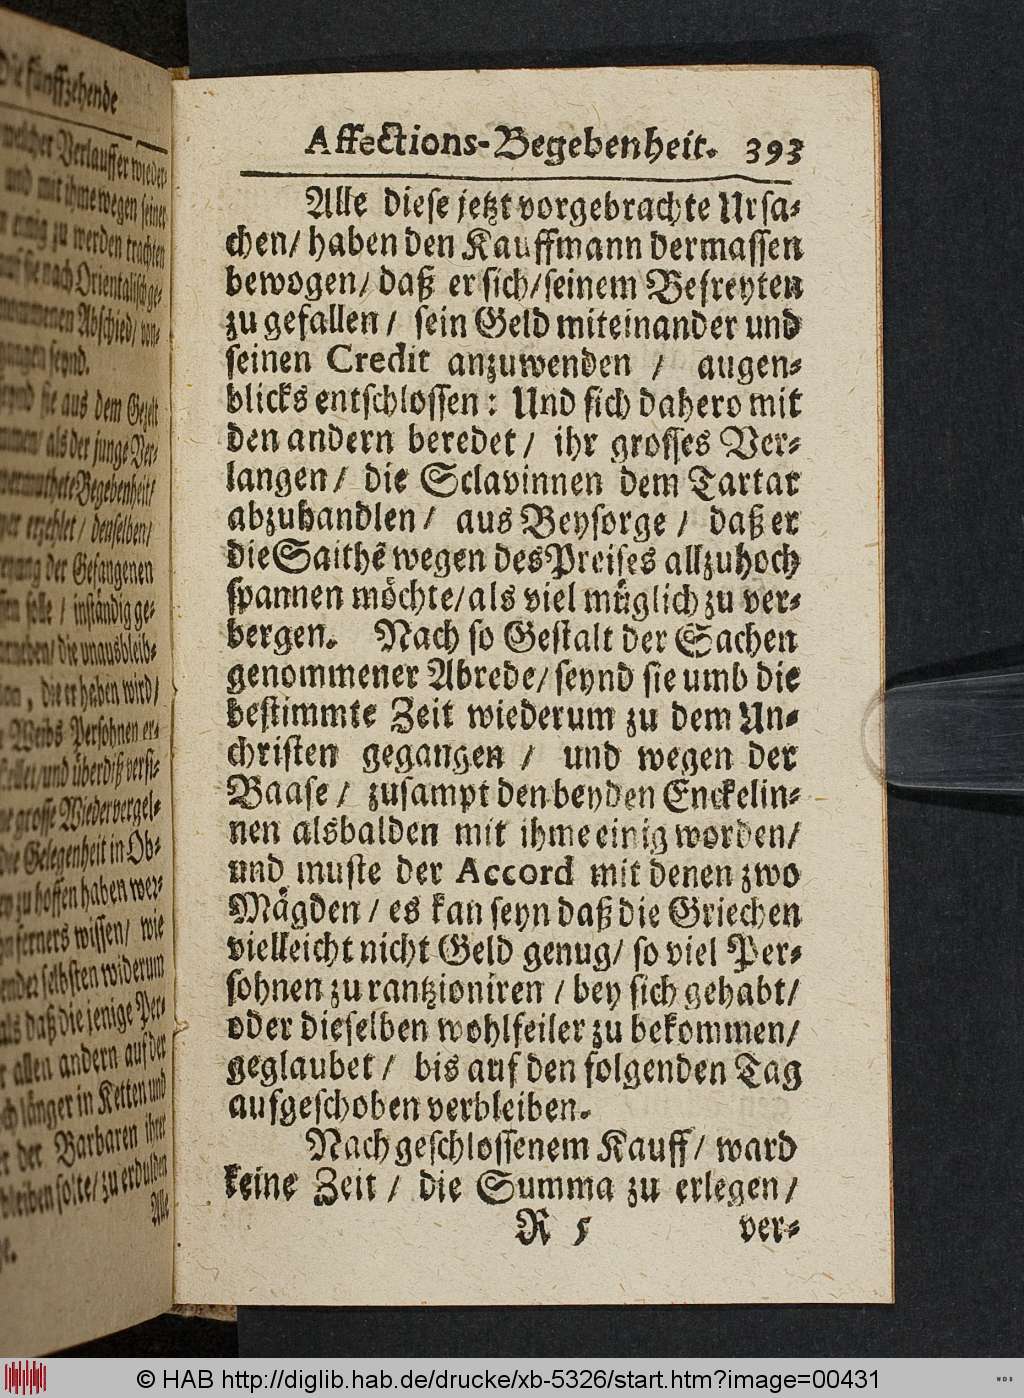 Die fünffzehende
welcher Verlauffer wieder-
und mit ihme wegen seiner
einig zu werden trachten
sie nach Orientalisch ge-
nommenen Abschied/ von-
gangen seynd.
sie aus dem Gezelt
als der junge Ver-
Begebenheit/
erzehlet / denselben/
der Gefangenen
solle / inständig ge-
die unausbleib-
die er haben wird/
Weibs Persohnen er-
und überdiß versi-
grosse Wiedervergel-
die Gelegenheit in Ob-
zu hoffen haben wer-
ferners wissen/ wie
selbsten widerum
als daß die jenige Per-
allen andern auf der
länger in Ketten und
der Barbaren ihrer
bleiben solte/ zu erdulden
Alle
Affections-Begebenheit. 393
Alle diese jetzt vorgebrachte Ursa-
chen/ haben den Kauffmann dermassen
bewogen/ daß er sich/ seinem Befreyten
zu gefallen / sein Geld miteinander und
seinen Credit anzuwenden / augen-
blicks entschlossen: Und sich dahero mit
den andern beredet / ihr grosses Ver-
langen / die Sclavinnen dem Tartar
abzuhandlen / aus Beysorge / daß er
die Saithē wegen des Preises allzuhoch
spannen möchte/ als viel müglich zu ver-
bergen. Nach so Gestalt der Sachen
genommener Abrede/ seynd sie umb die
bestimmte Zeit wiederum zu dem Un-
christen gegangen / und wegen der
Baase / zusampt den beyden Enckelin-
nen alsbalden mit ihme einig worden/
und muste der Accord mit denen zwo
Mägden / es kan seyn daß die Griechen
vielleicht nicht Geld genug/ so viel Per-
sohnen zu rantzioniren / bey sich gehabt/
oder dieselben wohlfeiler zu bekommen/
geglaubet / bis auf den folgenden Tag
aufgeschoben verbleiben.
Nach geschlossenem Kauff/ ward
keine Zeit / die Summa zu erlegen/
R 5 ver-
© HAB http://diglib.hab.de/drucke/xb-5326/start.htm?image=00431